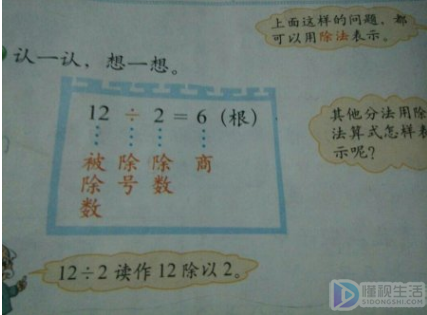 上面这样的问题，都
可以用除法表示。
认一认，想一想。
12 ÷ 2 = 6（根）
被除数 除号 除数 商
其他分法用除
法算式怎样表
示呢？
12÷2读作12除以2。
懂视生活
SIDONGSHI.COM